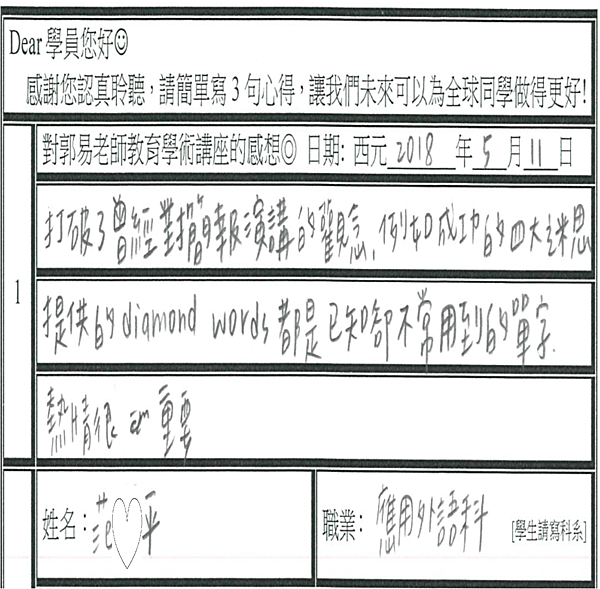 Dear 學員您好☺
感謝您認真聆聽，請簡單寫 3 句心得，讓我們未來可以為全球同學做得更好!
對郭易老師教育學術講座的感想◎ 日期: 西元 2018 年 5 月 11 日
1
打破了曾經對簡報演講的觀念，例如成功的四大迷思
提供的 diamond words 都是已知卻不常用到的單字.
熱情很 重要
姓名：范♡平
職業： 應用外語科 [學生請寫科系]